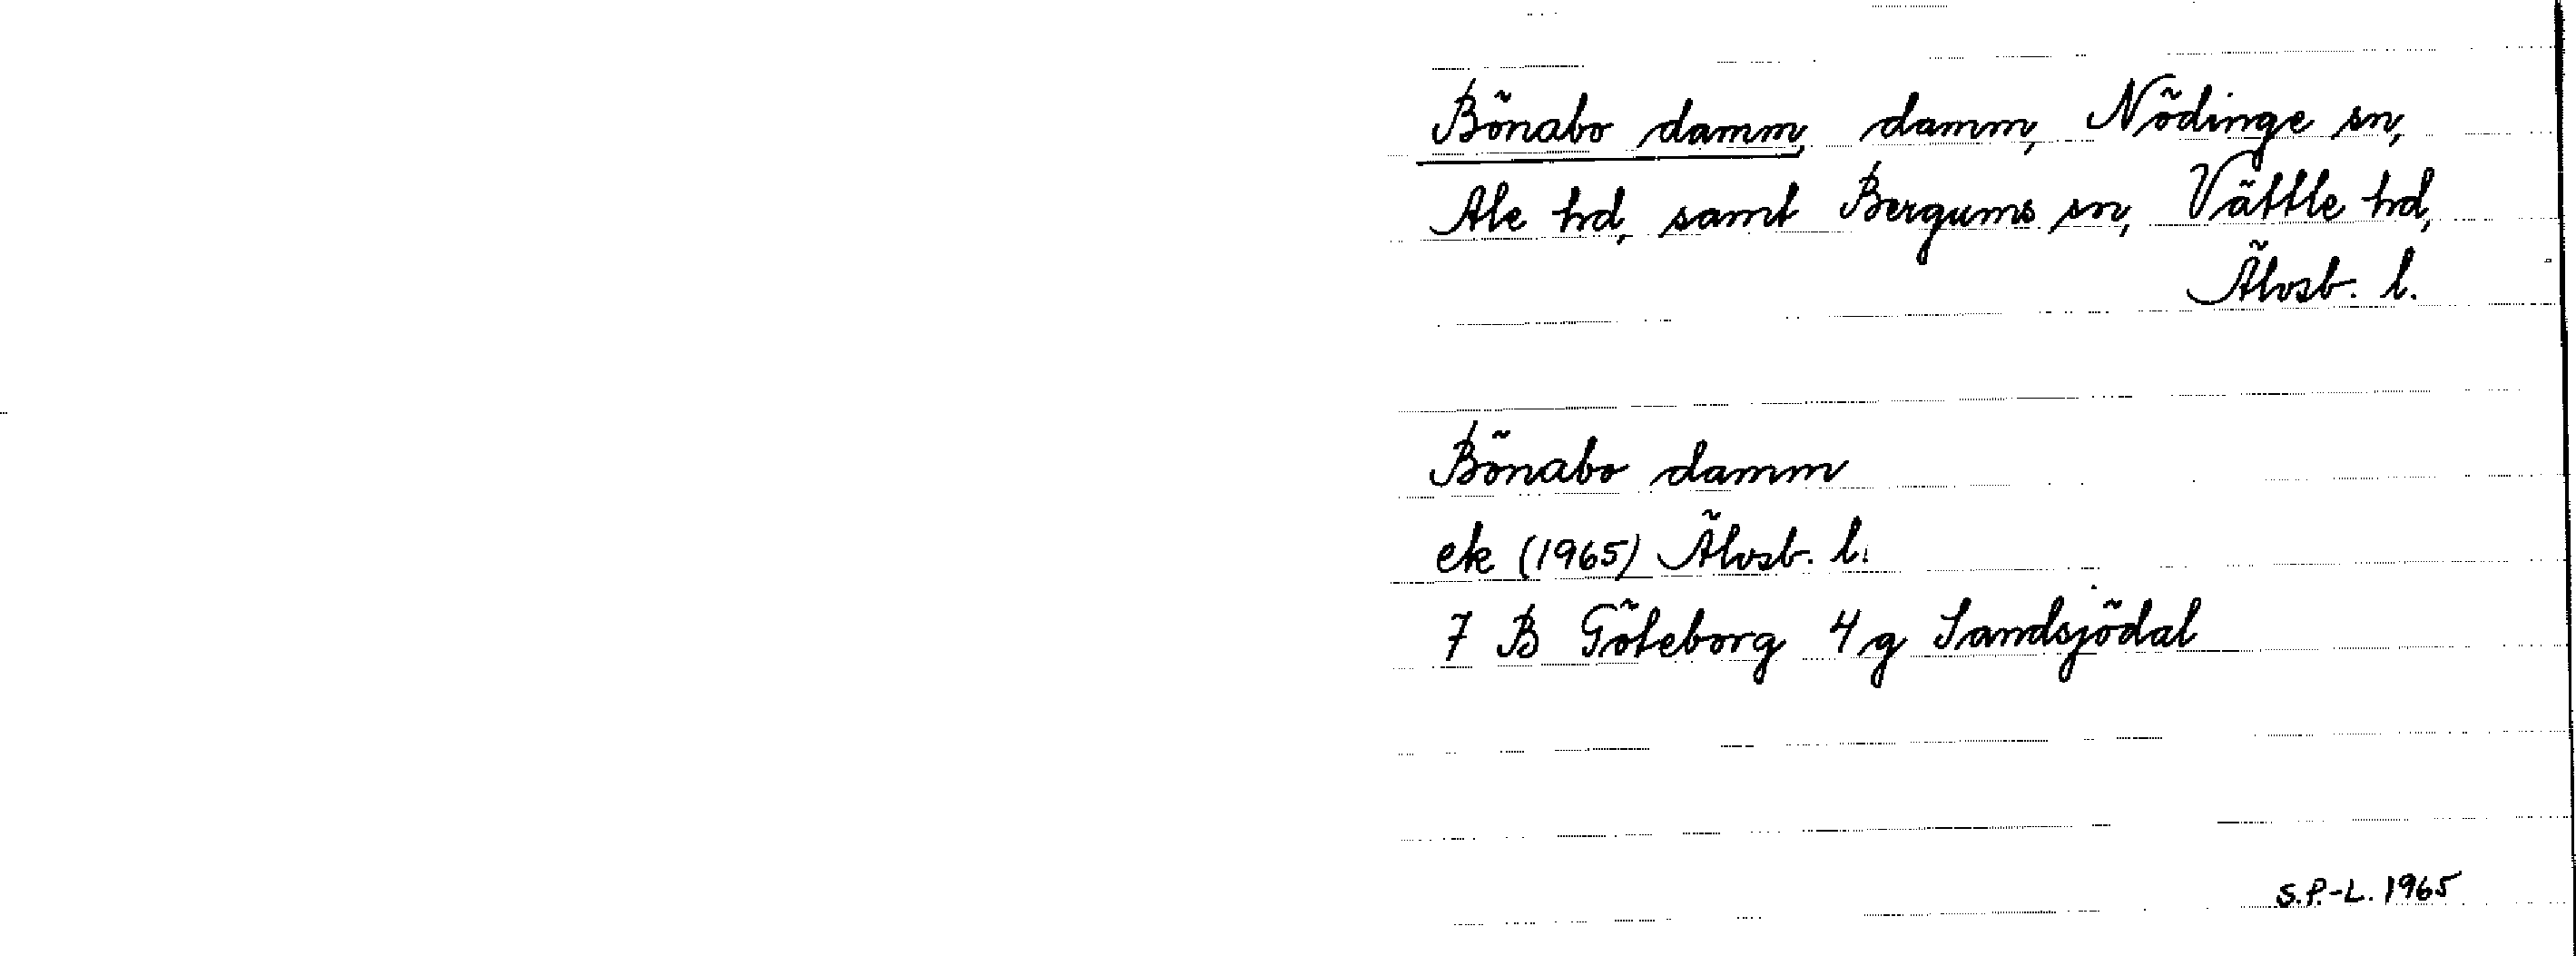 Bönabo damm, damm, Nödinge sn,
Ale hd, samt Bergums sn, Vättle hd,
Älvsb. l.
Bönabo damm
ek (1965) Älvsb. l.
7 B Göteborg 4 g Sandsjödal
S.P.-L. 1965